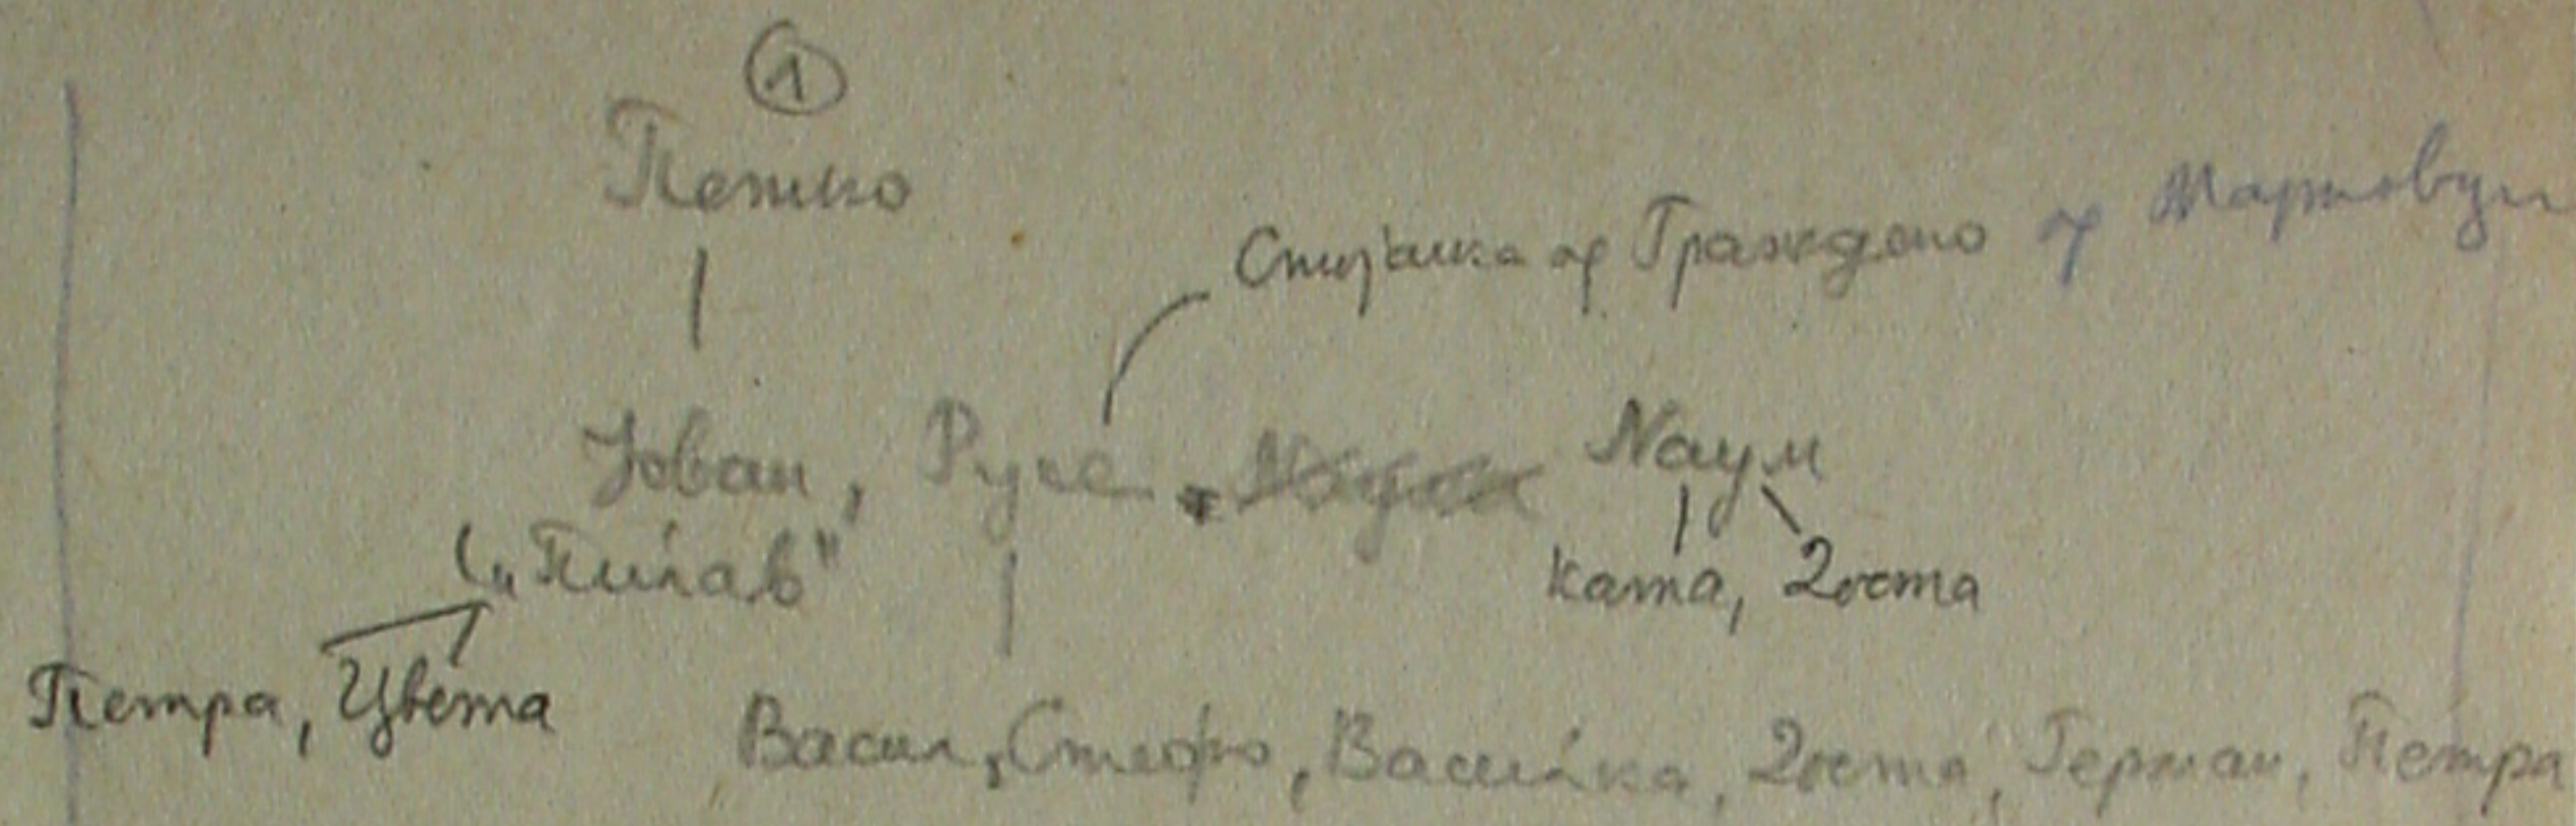 1
Петко
Стојанка од Граждено од Мартовци
Јован, Русе, Naум
(„Пилав"
Ката, Доста
Петра, Цвета
Васил, Стефо, Василка, Доста, Герман, Петра